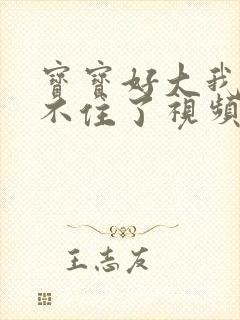 寶寶好大我
不住了視頻
王志友